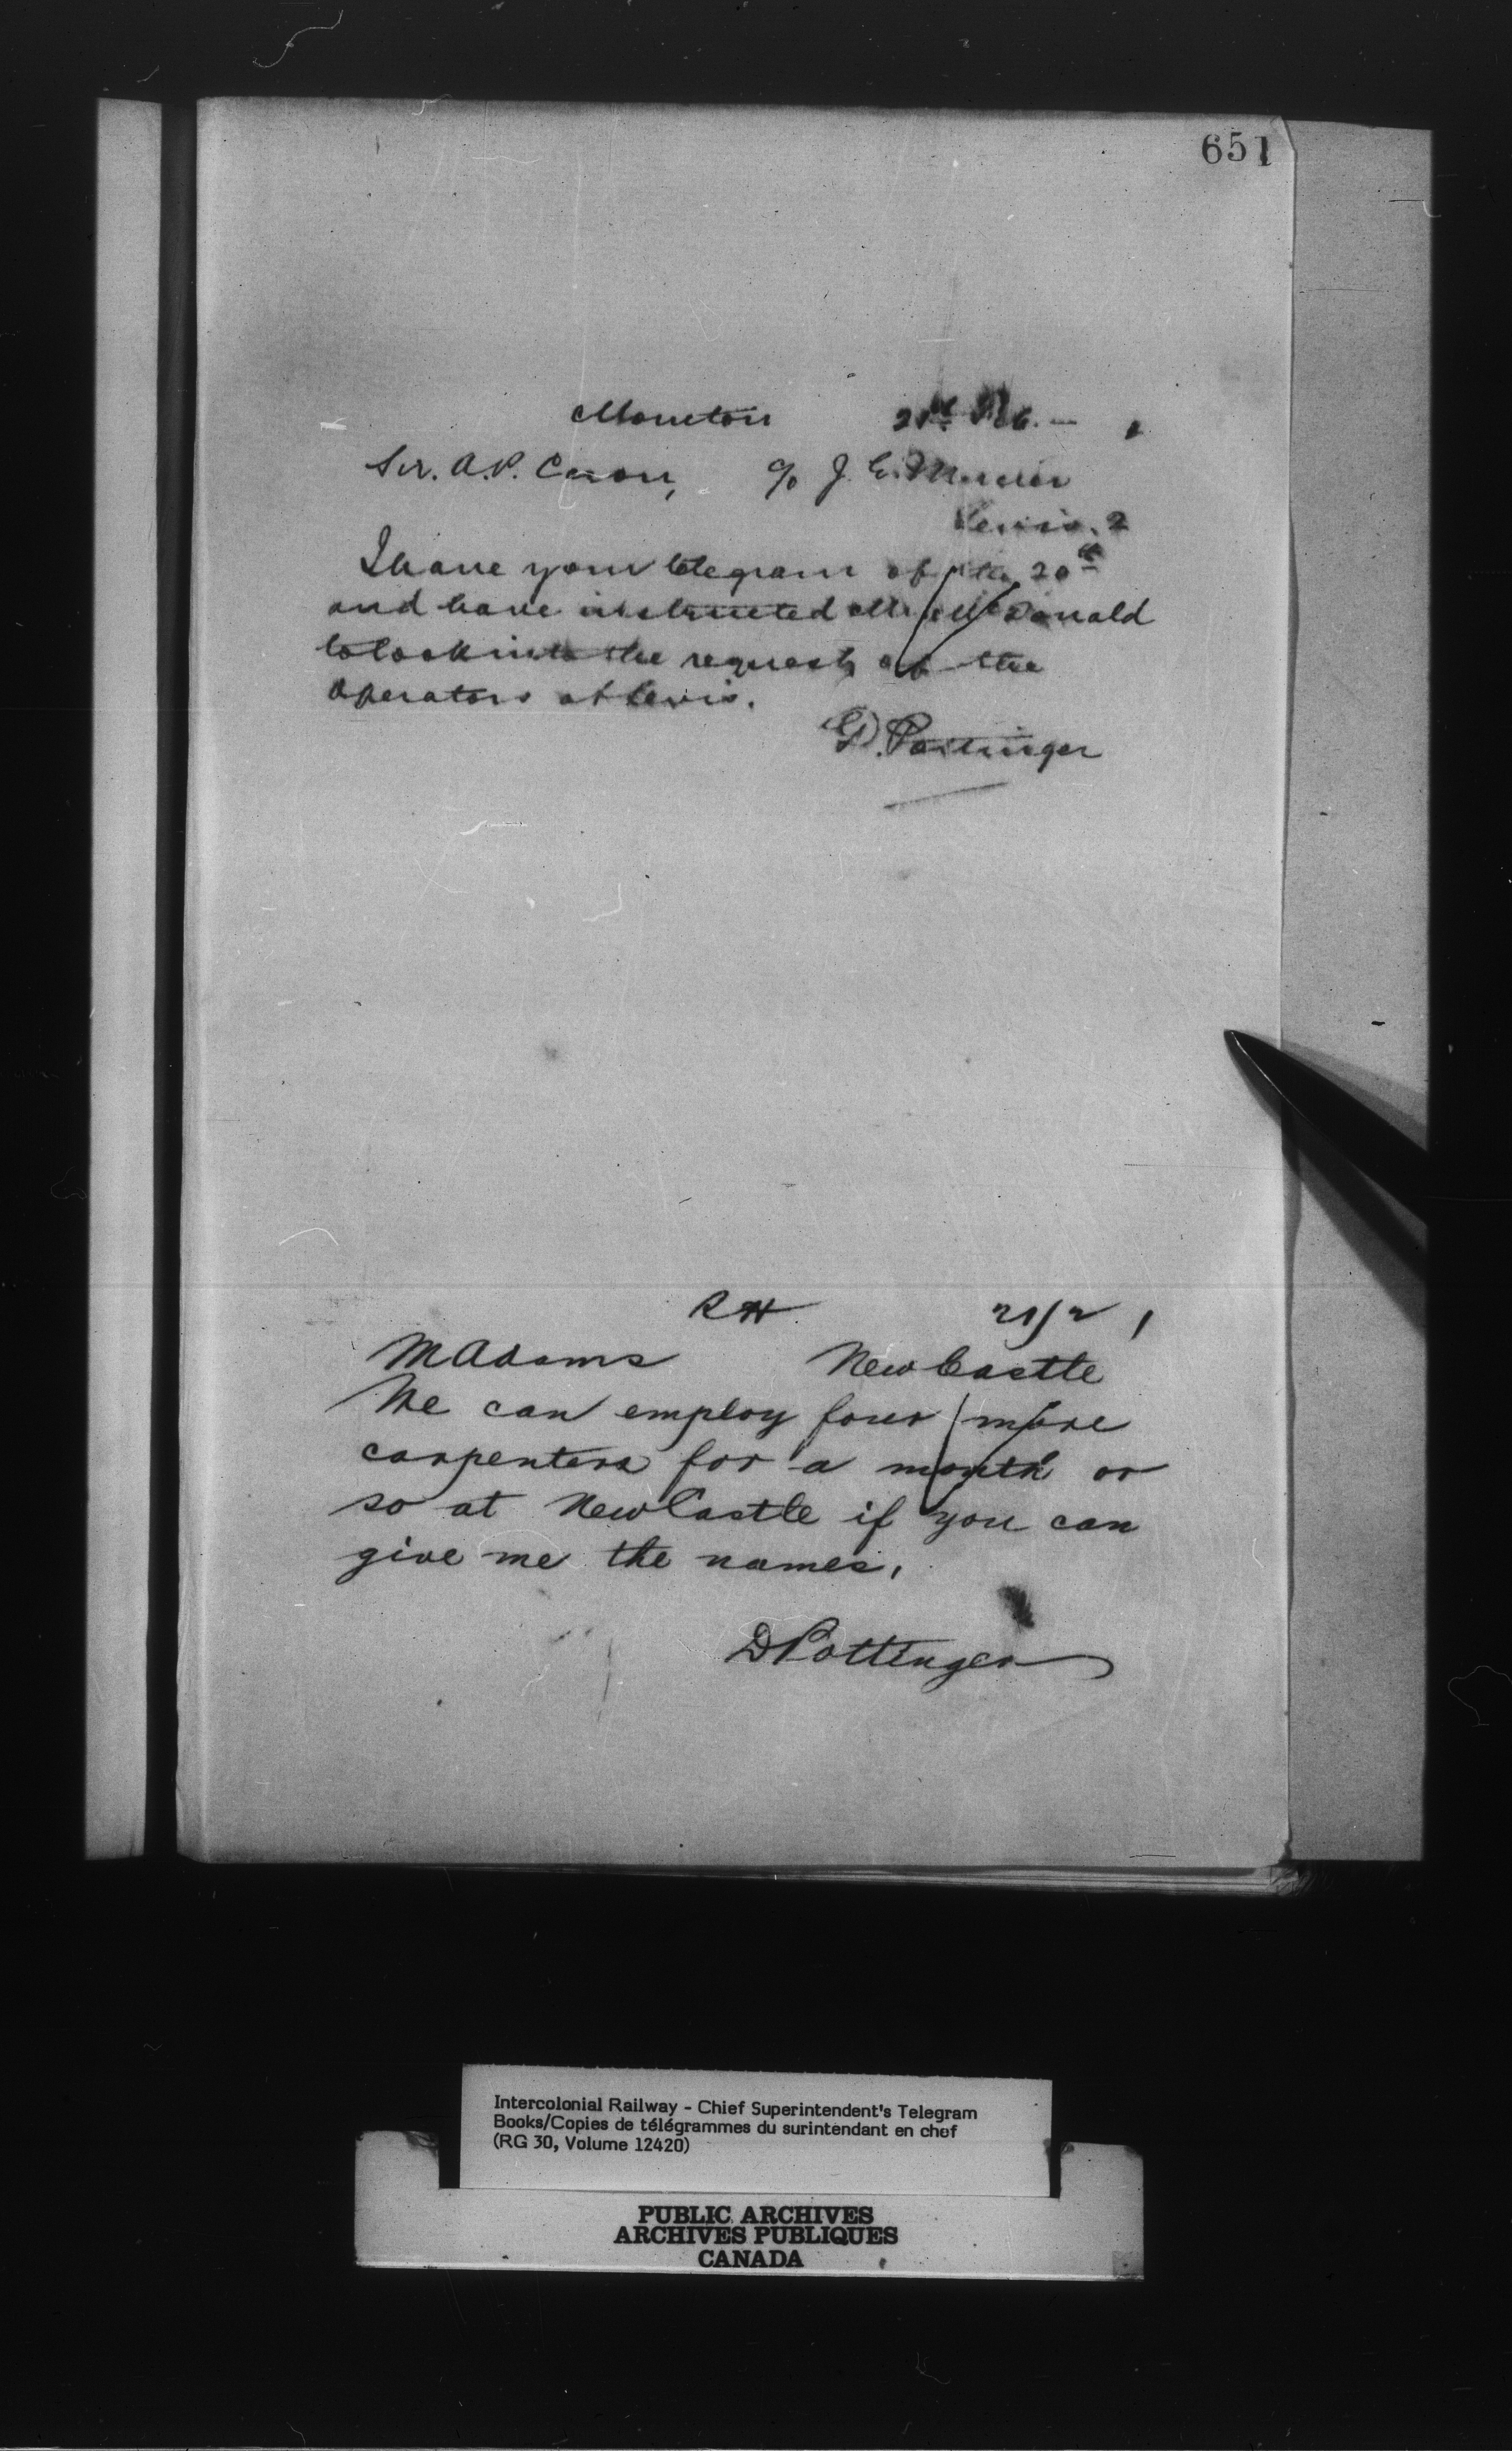 651
Moncton 21st Feb. —
Sir. A.P. Caron, c/o J. E. Mercier
Levis. 2
I have your telegram of the 20th
and have instructed Mr McDonald
to look into the request of the
operators at Levis.
D. Pottinger
RH 21/2 1
M Adams New Castle
We can employ four more
carpenters for a month or
so at New Castle if you can
give me the names.
D Pottinger
Intercolonial Railway - Chief Superintendent's Telegram
Books/Copies de télégrammes du surintendant en chef
(RG 30, Volume 12420)
PUBLIC ARCHIVES
ARCHIVES PUBLIQUES
CANADA